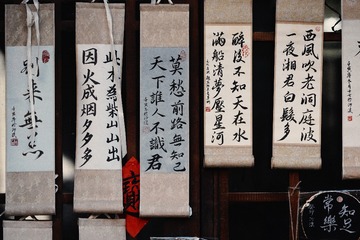 西風吹老洞庭波
一夜湘君白髮多
醉後不知天在水
滿船清夢壓星河
莫愁前路無知己
天下誰人不識君
此木為柴山山出
因火成烟夕夕多
别来無恙
知足
常樂